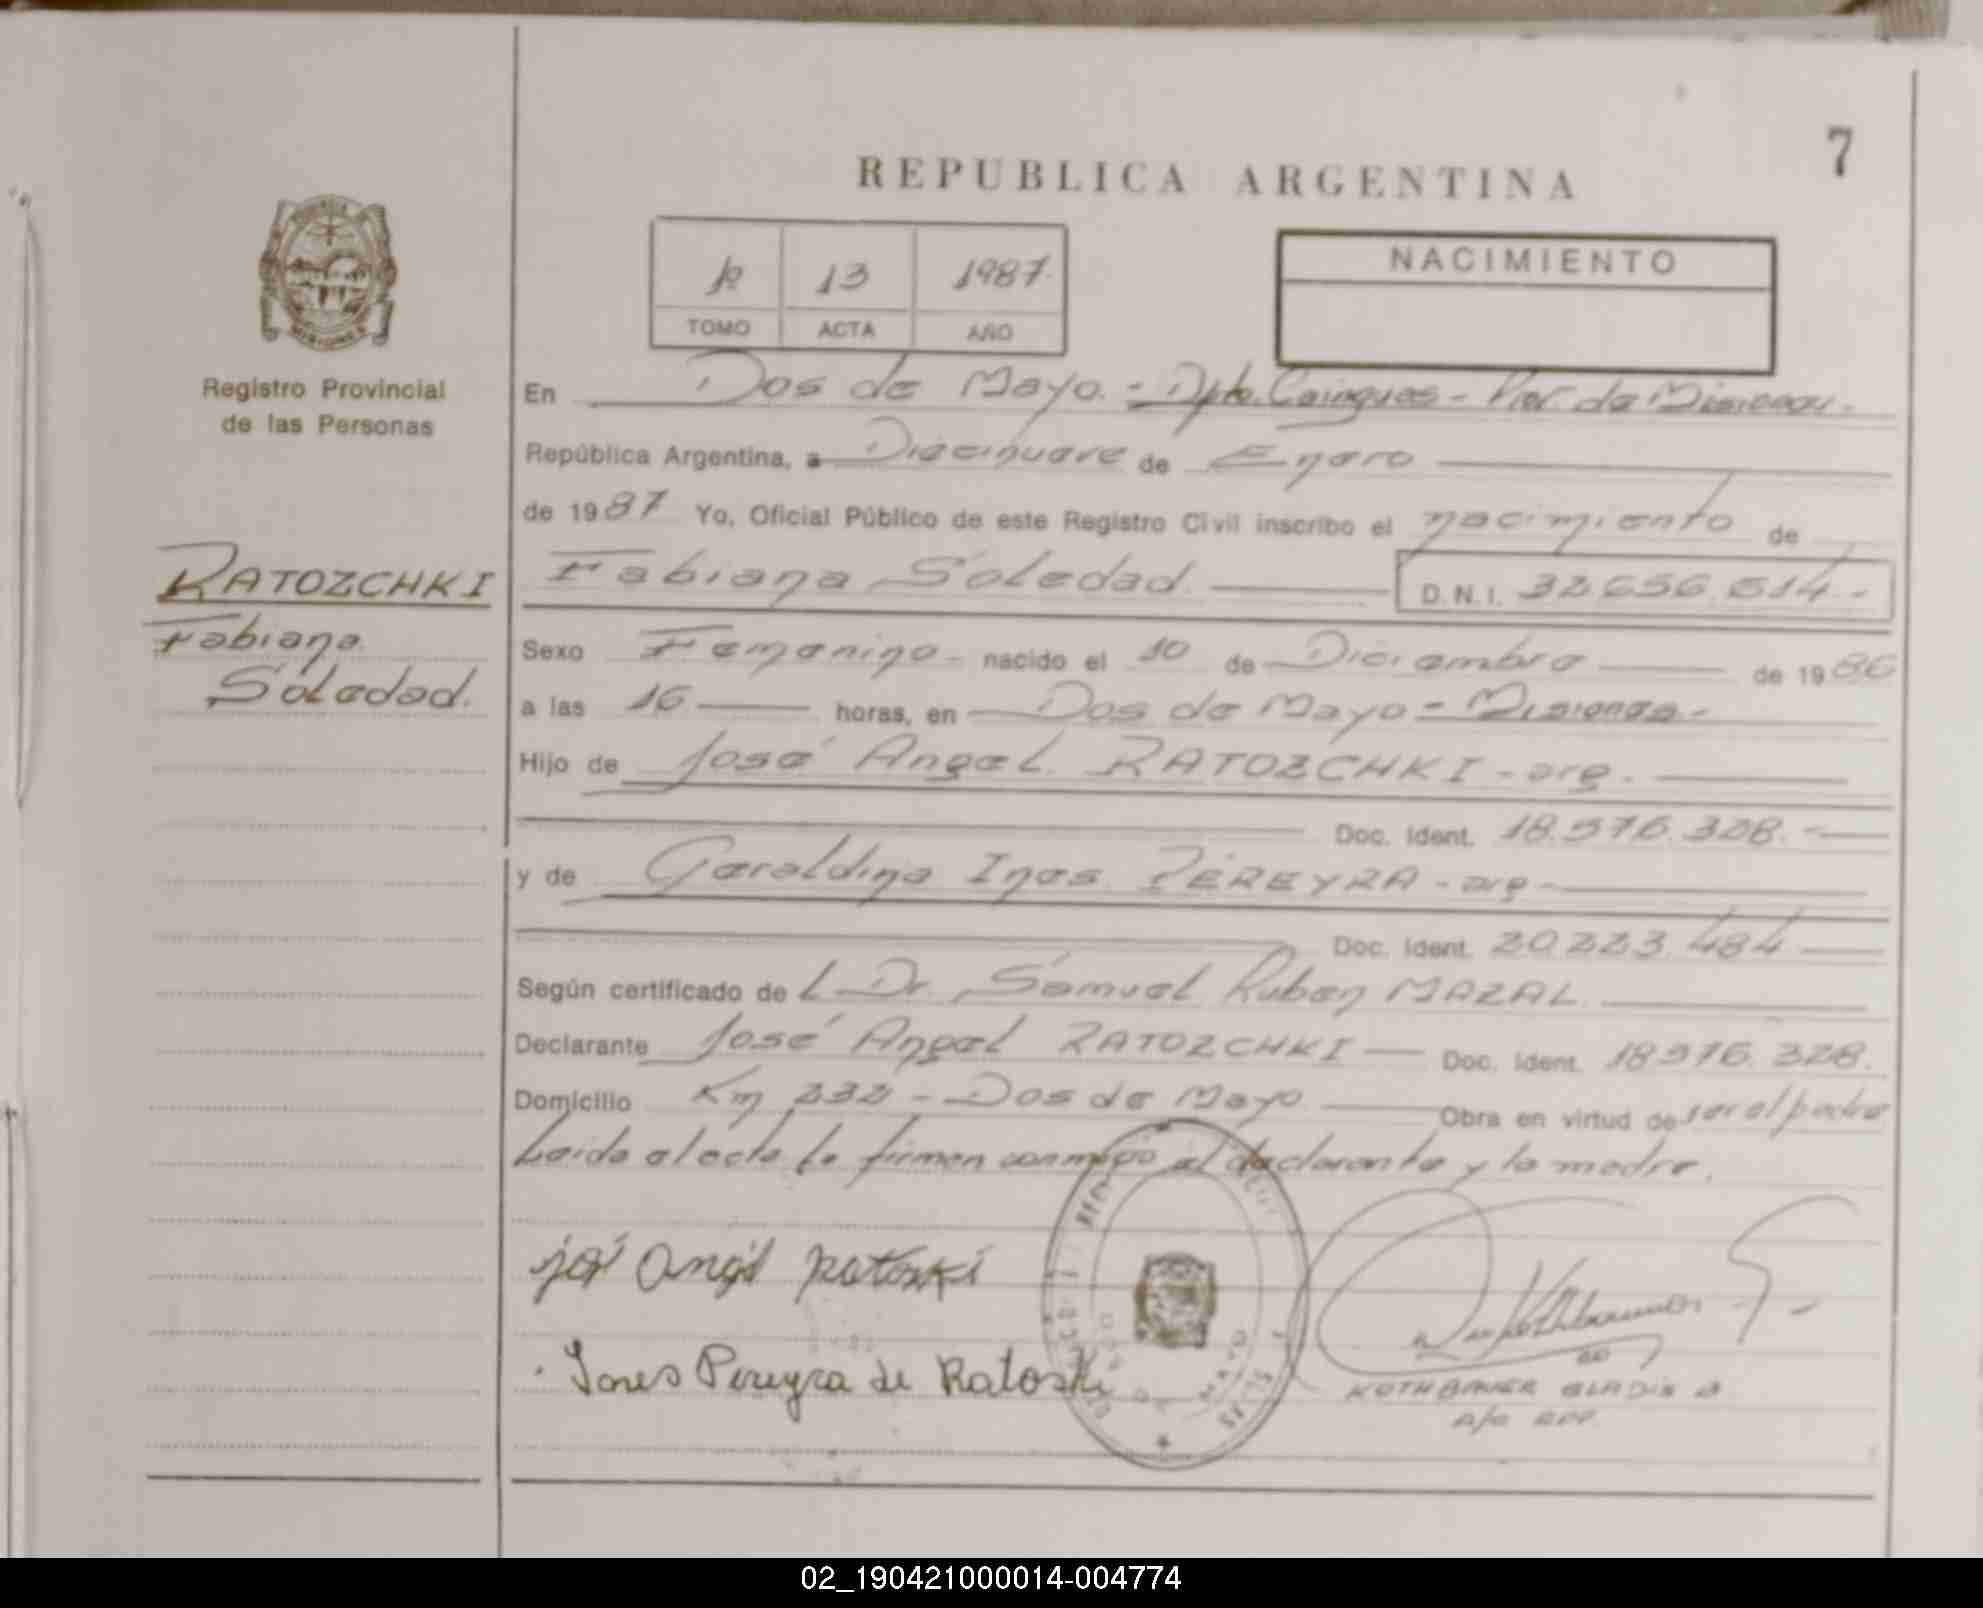 7
REPUBLICA ARGENTINA
1º 13 1987
TOMO ACTA AÑO
NACIMIENTO
MISIONES
Registro Provincial
de las Personas
En Dos de Mayo.- Dpto. Cainguas - Prov. de Misiones.-
República Argentina, a Diecinueve de Enero
de 1987 Yo, Oficial Público de este Registro Civil inscribo el nacimiento de
RATOZCHKI
Fabiana
Soledad.
Fabiana Soledad. D.N.I. 32.656.514.-
Sexo Femenino - nacido el 10 de Diciembre de 1986
a las 16 horas, en Dos de Mayo - Misiones -
Hijo de José Angel RATOZCHKI - arg.
Doc. Ident. 18.576.328.-
y de Geraldina Ines PEREYRA - arg -
Doc. Ident. 20.223.484
Según certificado de L Dr. Samuel Ruben MAZAL
Declarante José Angel RATOZCHKI Doc. Ident. 18.576.328.
Domicilio Km 232 - Dos de Mayo Obra en virtud de ser el padre
Leida el acta la firman conmigo el declarante y la madre.
josé Angel Ratoski
Ines Pereyra de Ratoski
KOTHBAUER GLADIS
02_190421000014-004774